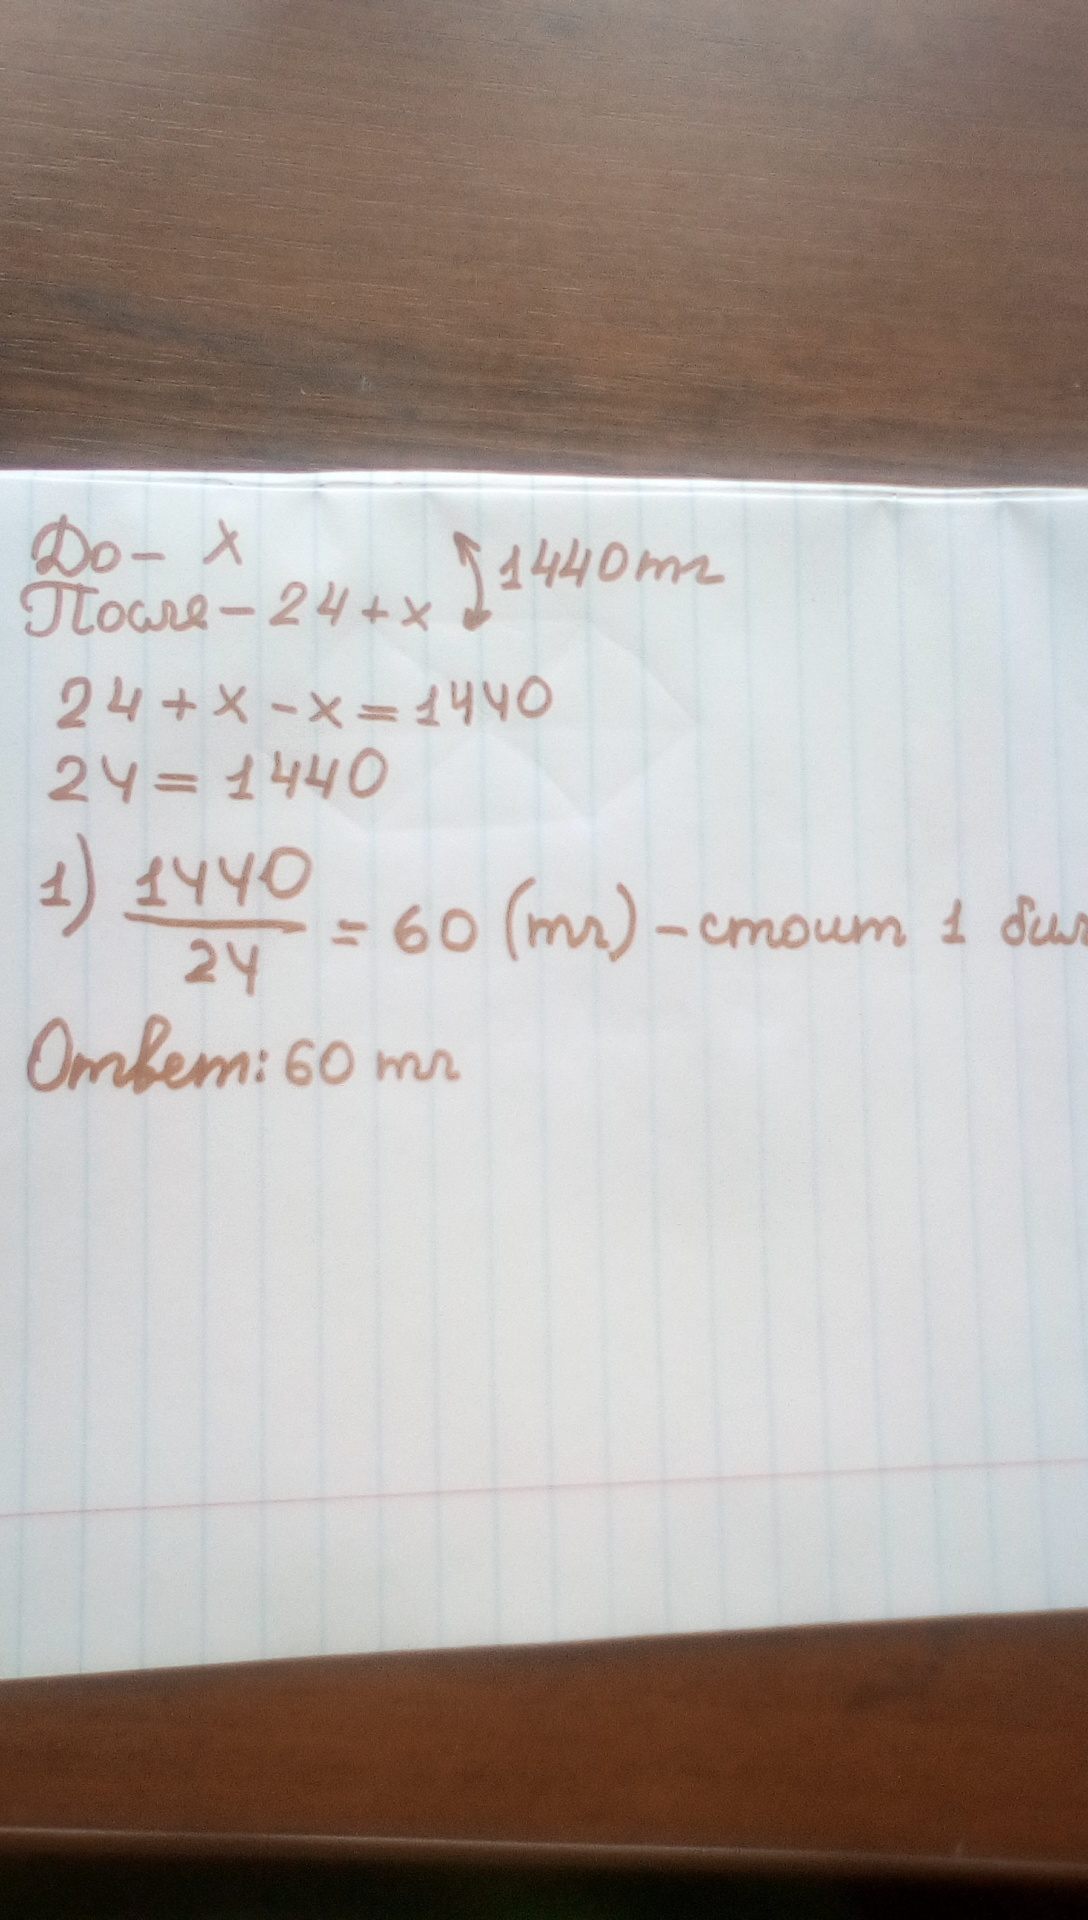 До - х
После - 24 + х 1440 тг
24 + х - х = 1440
24 = 1440
1) 1440/24 = 60 (тг) - стоит 1 бил
Ответ: 60 тг